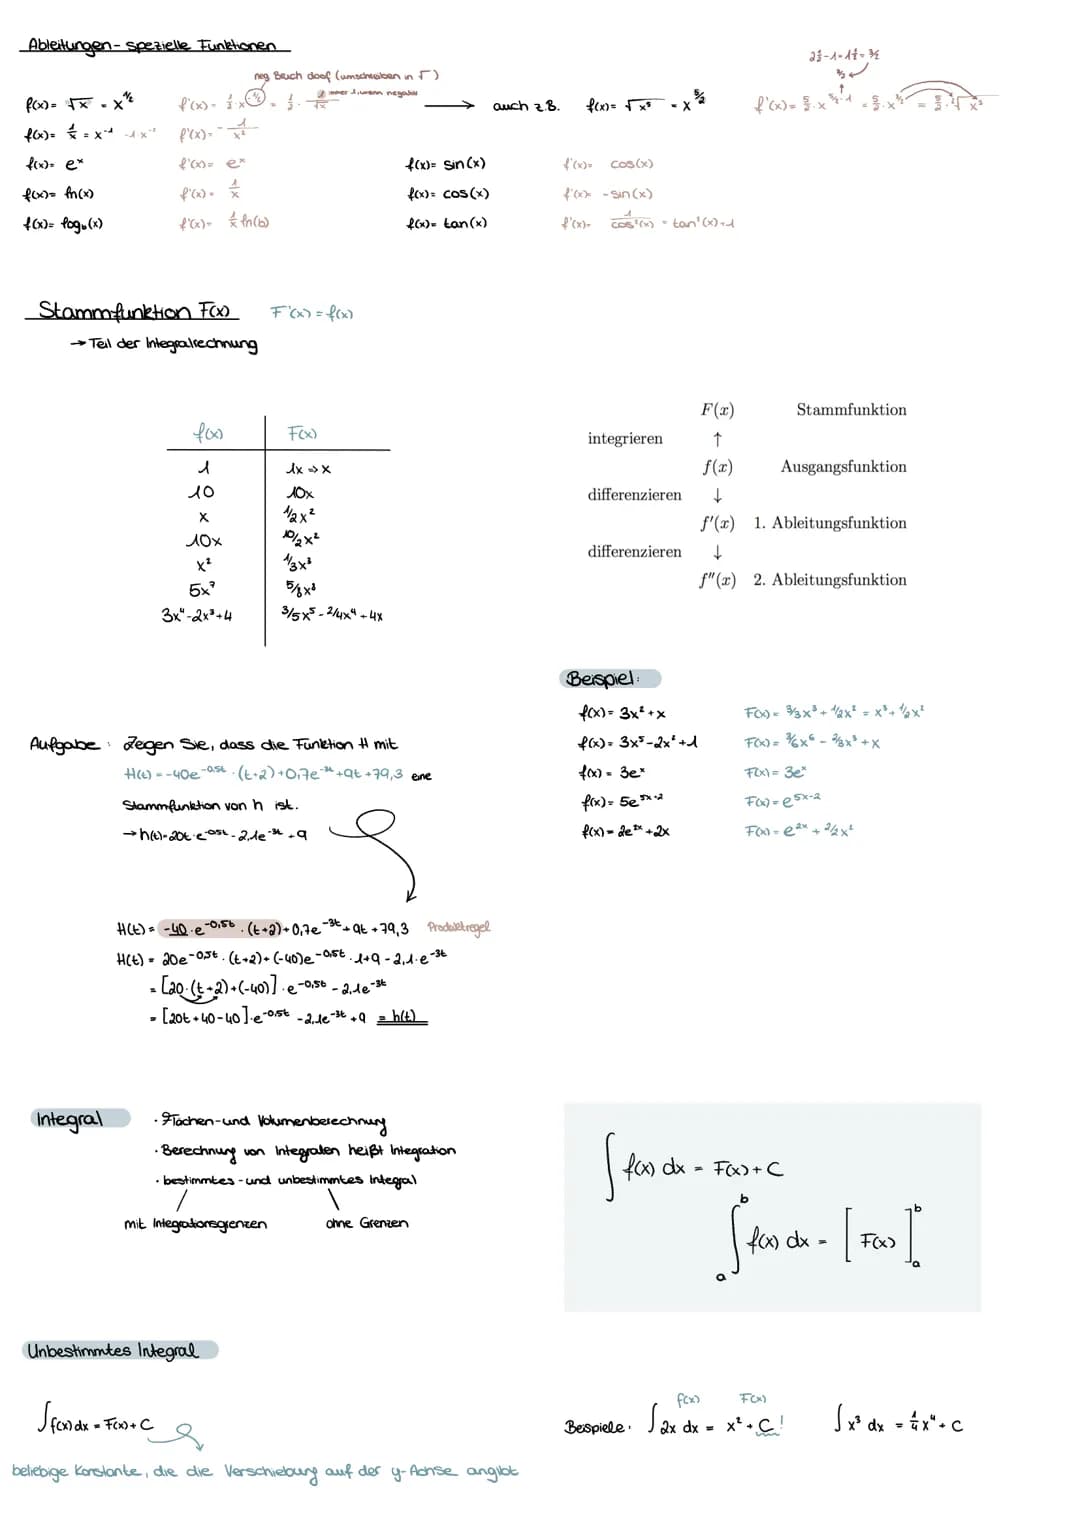 Ableitungen - spezielle Funktionen
2½-1=1½=3/2
neg Bruch doof (umschreiben in √ )
3/2
f(x)= √x = x^½ f'(x)= ½·x^-½ = ½ · 1/√x → auch z.B. f(x)= √x⁵ = x^5/2 f'(x)= 5/2·x^5/2-1 = 5/2·x^3/2 = 5/2·²√x³
f(x)= 1/x = x⁻¹ -1·x⁻² f'(x)= -1/x²
f(x)= eˣ f'(x)= eˣ f(x)= sin(x) f'(x)= cos(x)
f(x)= ln(x) f'(x)= 1/x f(x)= cos(x) f'(x)= -sin(x)
f(x)= log_b(x) f'(x)= 1/x ln(b) f(x)= tan(x) f'(x)= 1/cos²(x) = tan²(x)+1
Stammfunktion F(x) F'(x) = f(x)
→ Teil der Integralrechnung
f(x) F(x)
1 1x ⇒ x
10 10x
x 1/2x²
10x 10/2x²
x² 1/3x³
5x⁷ 5/8x⁸
3x⁴-2x³+4 3/5x⁵ - 2/4x⁴ + 4x
F(x) Stammfunktion
integrieren ↑
f(x) Ausgangsfunktion
differenzieren ↓
f'(x) 1. Ableitungsfunktion
differenzieren ↓
f''(x) 2. Ableitungsfunktion
Beispiel:
f(x)= 3x²+x F(x)= 3/3x³ + 1/2x² = x³+1/2x²
f(x)= 3x⁵-2x²+1 F(x)= 3/6x⁶ - 2/3x³ + x
f(x)= 3eˣ F(x)= 3eˣ
f(x)= 5e^5x-2 F(x)= e^5x-2
f(x)= 2e^2x+2x F(x)= e^2x + 2/2x²
Aufgabe: Zegen Sie, dass die Funktion H mit
H(t) = -40e^-0,5t · (t+2)+0,7e^-3t+9t+79,3 eine
Stammfunktion von h ist.
→ h(t)=20t·e^-0,5t - 2,1e^-3t + 9
H(t) = -40·e^-0,5t · (t+2)+0,7e^-3t + 9t +79,3 Produktregel
H(t) = 20e^-0,5t · (t+2)+(-40)e^-0,5t · 1+9 - 2,1·e^-3t
= [20·(t+2)+(-40)]·e^-0,5t - 2,1e^-3t
= [20t+40-40]·e^-0,5t - 2,1e^-3t + 9 = h(t)
Integral · Flächen-und Volumenberechnung
· Berechnung von Integralen heißt Integration
· bestimmtes - und unbestimmtes Integral
mit Integrationsgrenzen ohne Grenzen
∫ f(x) dx = F(x) + C
∫ₐᵇ f(x) dx = [F(x)]ₐᵇ
Unbestimmtes Integral
f(x) F(x)
∫ f(x) dx = F(x) + C Beispiele: ∫ 2x dx = x² + C! ∫ x³ dx = ¼x⁴ + C
beliebige Konstante, die die Verschiebung auf der y-Achse angibt